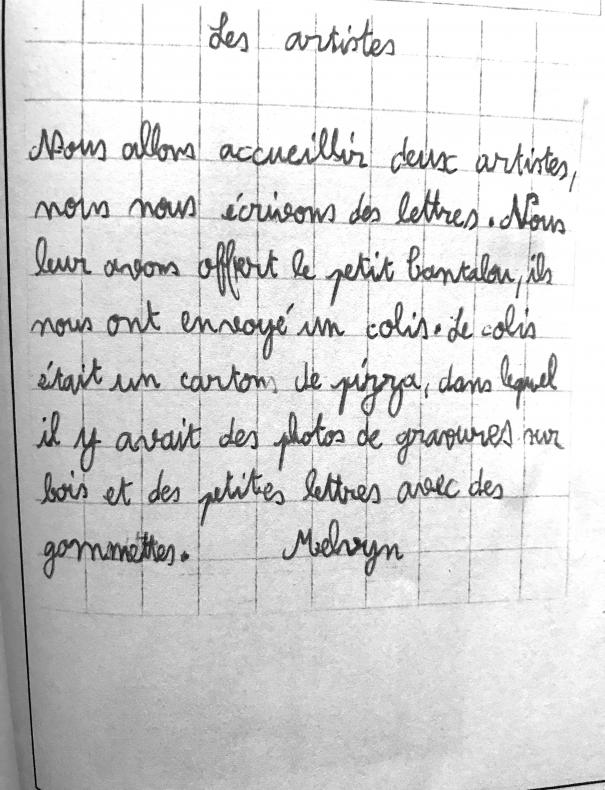 Les artistes
Nous allons accueillir deux artistes,
nous nous écrivons des lettres. Nous
leur avons offert le petit Cantalou, ils
nous ont envoyé un colis. Le colis
était un carton de pizza, dans lequel
il y avait des photos de gravures sur
bois et des petites lettres avec des
gommettes. Melvyn